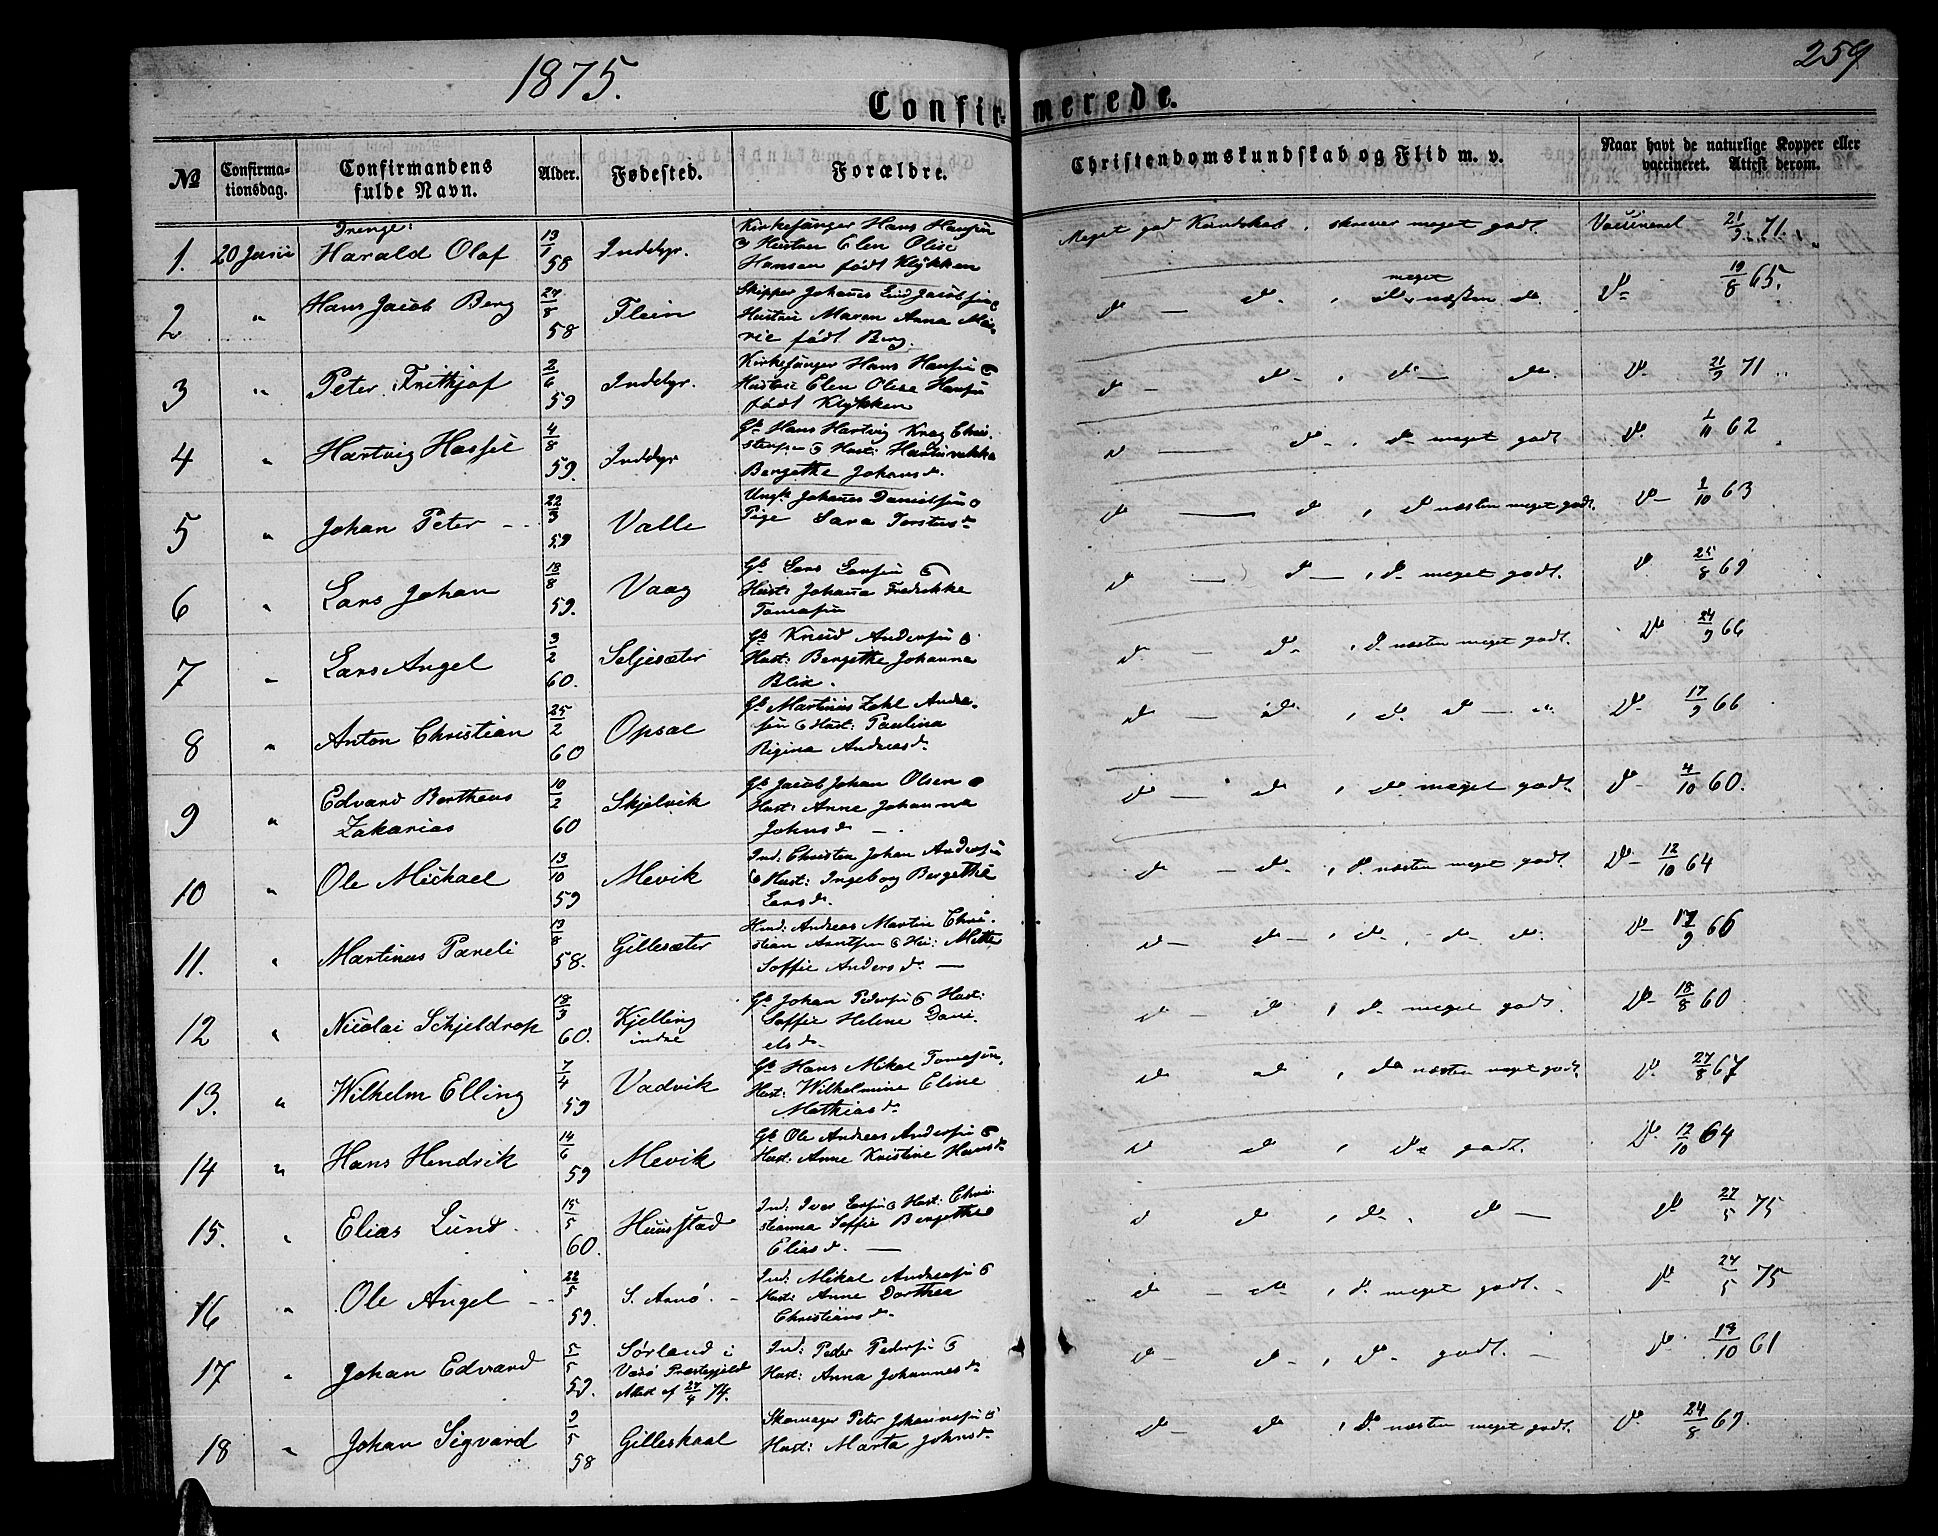 1875.
259
Confirmerede.
No
Confirma-
tionsdag.
Confirmandens
fulde Navn.
Alder.
Fødested.
Forældre.
Christendomskundskab og Flid m. v.
Naar havt de naturlige Kopper eller
vaccineret. Attest derom.
Drenge:
1. 20 Juni Harald Olaf 13/1 58 Inddyr.
Kirkesanger Hans Hansen
Hustru Elen Olise
Hansen født Klykken
Meget god Kundskab, skrever meget godt. Vaccineret 21/9 71.
2 " Hans Jacob Berg 27/8 58 Flein
Skipper Johanes Jacobsen
Hustru Maren Anna Ma-
rie født Berg.
do — do , meget næsten do Do 19/8 65.
3 " Peter Frithjof 2/6 59 Inddyr.
Kirkesanger Hans Hansen &
Hustru Elen Olise Hansen
født Klykken
do — do , do — do. Do 21/9 71
4 " Hartvig Hassel 4/8 59. Inddyr
Gb Hans Hartvig Krag Chri-
stensen & Hust:
Bergethe Johans d.
do — do , do meget godt Do 1/11 62
5 " Johan Peter - - 22/3 59 Valle
Ungk. Johanes Danielsen &
Pige Sara Torstens d
do — do , do næsten meget godt. Do 1/10 63
6 " Lars Johan 18/8 59. Vaag
Gb Lars Larsen &
Hust: Johana Fredrikke
Tomasen
do — do , do meget godt. Do 25/8 69
7 " Lars Angel 3/2 60. Seljesæter
Gb Knud Andersen &
Hust: Bergethe Johanna
Blix.
do — do , do næsten meget godt. Do 24/9 66
8 " Anton Christian 25/2 60 Opsal
Gb Martinus Zahl Andre-
sen & Hust: Paulina
Regina Andreas d.
do — do , do do — " Do 17/9 66
9 " Edvard Bertheus
Zakarias 10/2 60 Skjelvik
Gb Jacob Johan Olsen &
Hust: Anne Johanna
Johns d. —
do — do , do meget godt. Do 4/10 60.
10 " Ole Michael 13/10 59 Mevik
Ind: Christen Johan Andersen
& Hust: Ingeborg Bergethe
Lars d.
do - do , do næsten meget godt. Do 12/10 64
11. " Martinus Pareli 13/8 58. Gillesæter
Hmd: Andreas Martin Chri-
stian Arntsen & Hu: Mette
Soffie Anders d. —
do — do , do , do do. Do 17/9 66
12 " Nicolai Schjeldrop 18/3 60. Kjelling
indre
Gb Johan Pedersen & Hust:
Soffie Helene Dani-
els d.
do - do , do meget godt. Do 18/8 60
13. " Wilhelm Elling 7/4 59 Vadvik
Gb Hans Mikal Tomasen,
Hust: Wilhelmine Eline
Mathias d.
do do , do næsten meget godt. Do 27/8 67
14 " Hans Hendrik 14/6 59 Mevik
Gb Ole Andreas Andersen &
Hust: Anne Kristine Hans d
do do , do godt. Do 12/10 64
15. " Elias Lund 15/5 60. Huusstad
Ind: Iver Larsen & Hust: Chri-
stianna Soffie Bergethe
Elias d. —
do do , do. do — Do 27/5 75
16 " Ole Angel - - 22/5 59. S. Arnø. -
Ind: Mikal Andreasen &
Hust: Anne Dorthea
Christians d.
do - do , do meget godt. - Do 24/5 75
17 " Johan Edvard 5/5 59. Sørland i
Værø Præstegjeld
Attest af 27/4 74.
Ind: Peder Pedersen &
Hust: Anna Johannes d
do - do , do godt. - Do 18/10 61
18 " Johan Sigvard 9/5 58 Gilleskaal
Skomager Peter Johannesen &
Hust: Marta Johns d
do - do , do næsten meget godt. Do 24/8 69.